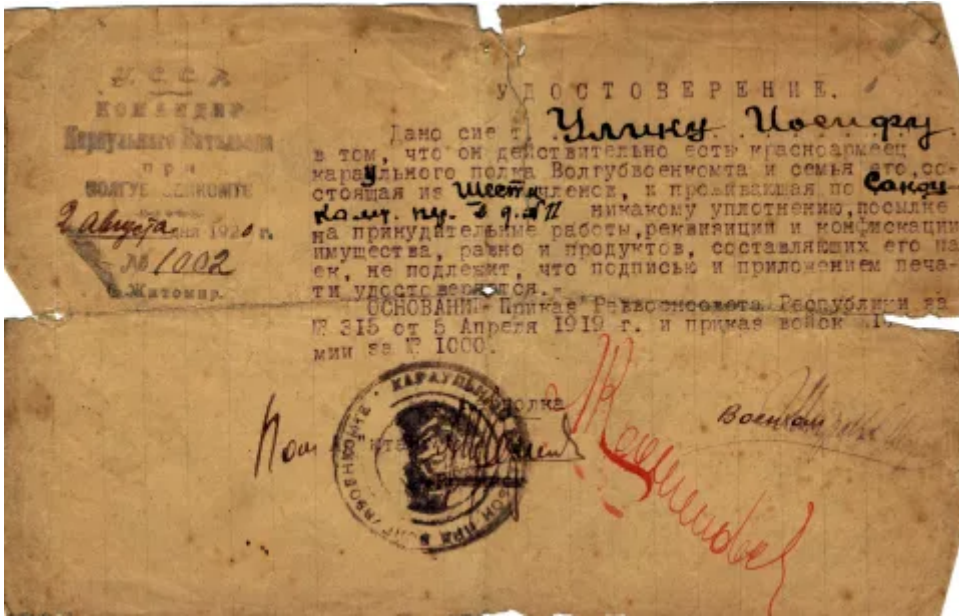 У.С.С.Р.
КОМАНДИР
Караульного Батальона
при
ВОЛГУБВОЕНКОМТЕ
2 Августа дня 1920 г.
№ 1002
г. Житомир.
УДОСТОВЕРЕНИЕ.
Дано сие т. Улику Иосифу
в том, что он действительно есть красноармеец
караульного полка Волгубвоенкомта и семья его, со-
стоящая из шести членов, и проживающая по
никакому уплотнению, посылке
на принудительные работы, реквизиции и конфискации
имущества, равно и продуктов, составляющих его па
ек, не подлежит, что подписью и приложением печа-
ти удостоверяется.-
ОСНОВАНИЕ Приказ Реввоенсовета Республики за
№ 315 от 5 Апреля 1919 г. и приказ войск
мии за № 1000.
полка
Пом
Военком
КАРАУЛЬНЫЙ